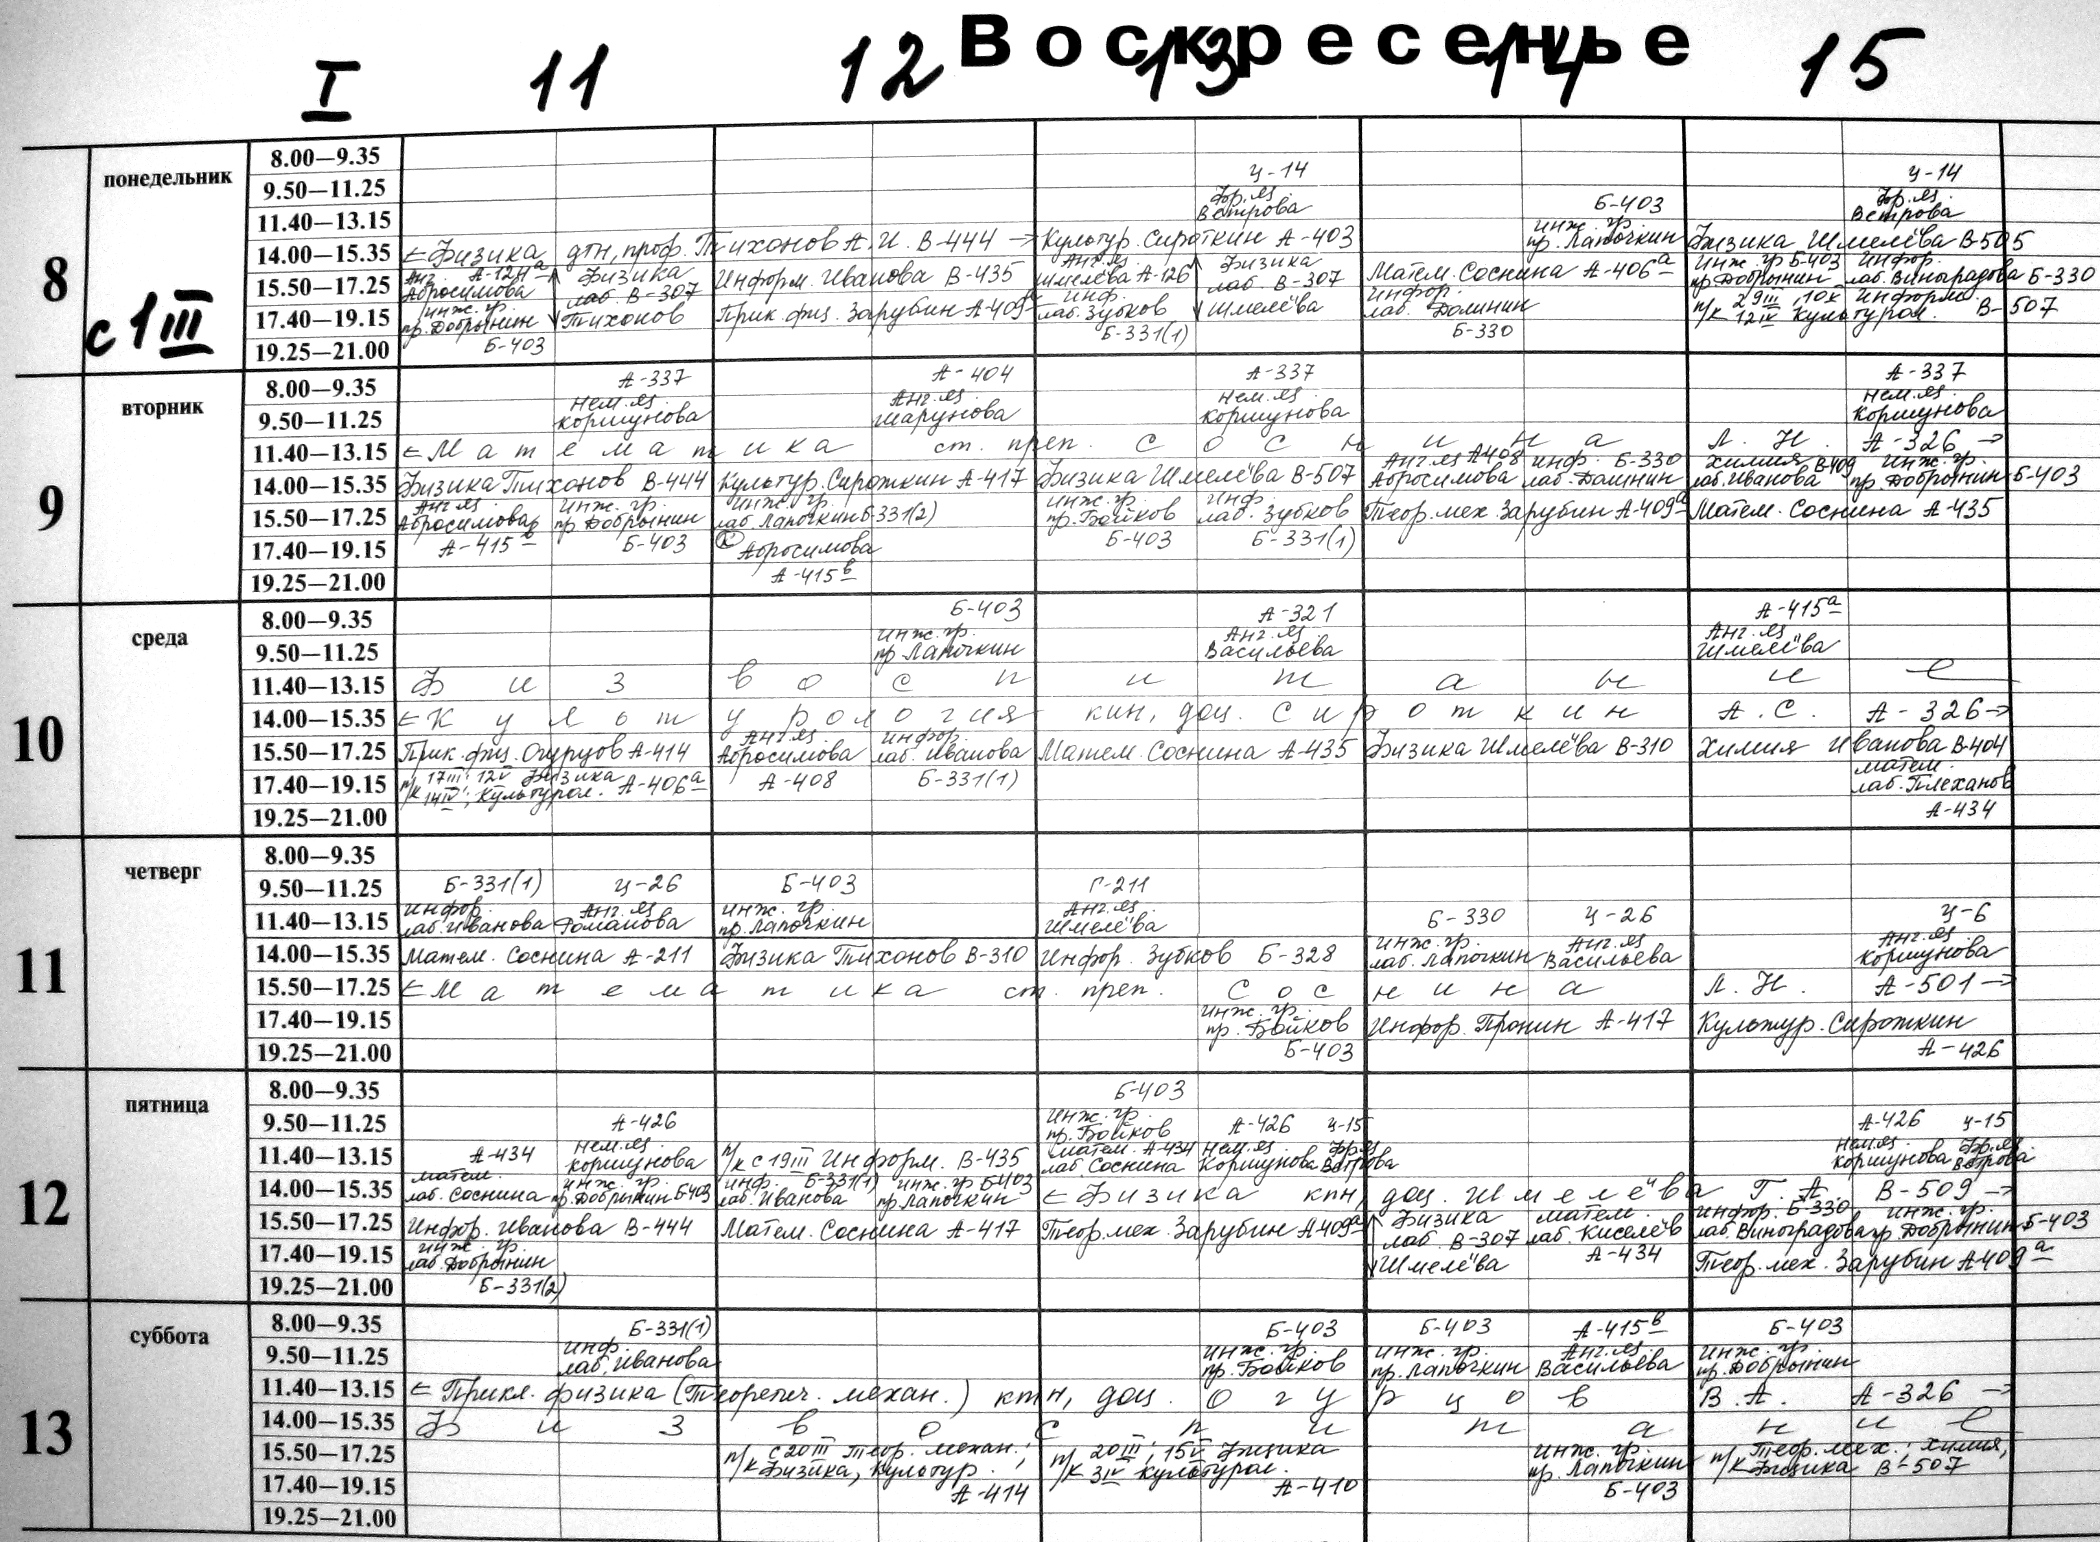 Воскресенье
I 11 12 13 14 15
8
с 1 III
понедельник
8.00—9.35
Ц-14 Ц-14
9.50—11.25
Фр.яз. Б-403 Фр.яз.
11.40—13.15
Ветрова инж. гр. Ветрова
пр. Лапочкин
14.00—15.35
← Физика дтн, проф. Тихонов А. И. В-444 → Культур. Сироткин А-403 Физика Шмелёва В-505
15.50—17.25
Анг. А-124а Абросимова
Физика лаб. В-307 Тихонов
Информ. Иванова В-435
Анг.яз. Шмелёва А-126
Физика лаб. В-307 Шмелёва
Матем. Соснина А-406а
инж. гр Б-403 пр. Добрынин
Инфор. лаб. Виноградова Б-330
17.40—19.15
инж. гр. пр. Добрынин
Прик. физ. Зарубин А-409а
инф. лаб. Зубков
инфор. лаб. Долинин
п/к 29 III, 10 Информ.
12 IV Культурол. В-507
19.25—21.00
Б-403 Б-331(1) Б-330
9
вторник
8.00—9.35
А-337 А-404 А-337 А-337
9.50—11.25
Нем.яз. Коршунова
Анг.яз. Шарунова
Нем.яз. Коршунова
Нем.яз. Коршунова
11.40—13.15
← Математика ст. преп. Соснина Л. Н. А-326 →
14.00—15.35
Физика Тихонов В-444 Культур. Сироткин А-417 Физика Шмелёва В-507
Анг.яз А408 Абросимова
инф. Б-330 лаб. Долинин
Химия В-409 лаб. Иванова
инж. гр. пр. Добрынин Б-403
15.50—17.25
Анг.яз Абросимова
инж. гр. пр. Добрынин
инж. гр. лаб. Лапочкин Б-331(2)
инж. гр. пр. Бойков
инф. лаб. Зубков
Теор. мех. Зарубин А-409а Матем. Соснина А-435
17.40—19.15
А-415в Б-403 Абросимова Б-403 Б-331(1)
19.25—21.00
А-415в
10
среда
8.00—9.35
Б-403 А-321 А-415а
9.50—11.25
инж. гр. пр. Лапочкин
Анг.яз Васильева
Анг.яз Шмелёва
11.40—13.15
Физвоспитание
14.00—15.35
← Культурология кин, доц. Сироткин А. С. А-326 →
15.50—17.25
Прик. физ. Огурцов А-414
Анг.яз. Абросимова
инфор. лаб. Иванова
Матем. Соснина А-435 Физика Шмелёва В-310 Химия Иванова В-404
17.40—19.15
п/к 17 III, 12 V Физика
14 IV, Культурол. А-406а
А-408 Б-331(1)
матем. лаб. Плеханов
19.25—21.00
А-434
11
четверг
8.00—9.35
9.50—11.25
Б-331(1) Ц-26 Б-403 Г-211
11.40—13.15
инфор. лаб. Иванова
Анг.яз Романова
инж. гр. пр. Лапочкин
Анг.яз. Шмелёва
Б-330 Ц-26 Ц-6
14.00—15.35
Матем. Соснина А-211 Физика Тихонов В-310 Инфор. Зубков Б-328
инж. гр. лаб. Лапочкин
Анг.яз Васильева
Анг.яз. Коршунова
15.50—17.25
← Математика ст. преп. Соснина Л. Н. А-501 →
17.40—19.15
инж. гр. пр. Бойков
Инфор. Пронин А-417 Культур. Сироткин
19.25—21.00
Б-403 А-426
12
пятница
8.00—9.35
Б-403
9.50—11.25
А-426
инж. гр. пр. Бойков
А-426 Ц-15 А-426 Ц-15
11.40—13.15
А-434
Нем.яз. Коршунова
п/к с 19 III Информ. В-435
матем. А-434 лаб Соснина
Нем.яз. Коршунова
Фр.яз Ветрова
Нем.яз. Коршунова
Фр.яз. Ветрова
14.00—15.35
матем. лаб. Соснина
инж. гр. пр. Добрынин Б-403
инф. Б-331(1) лаб. Иванова
инж. гр Б-403 пр Лапочкин
← Физика кпн, доц. Шмелёва Г. А. В-509 →
15.50—17.25
Инфор. Иванова В-444 Матем. Соснина А-417 Теор. мех. Зарубин А409а
Физика лаб. В-307 Шмелёва
матем. лаб. Киселёв А-434
инфор. Б-330 лаб. Виноградова
инж. гр. пр Добрынин Б-403
17.40—19.15
инж. гр. лаб. Добрынин
Теор. мех. Зарубин А409а
19.25—21.00
Б-331(2)
13
суббота
8.00—9.35
Б-331(1) Б-403 Б-403 А-415в Б-403
9.50—11.25
инф. лаб. Иванова
инж. гр. пр. Бойков
инж. гр. пр. Лапочкин
Анг.яз. Васильева
инж. гр. пр. Добрынин
11.40—13.15
← Прикл. физика (Теоретич. механ.) ктн, доц. Огурцов В. А. А-326 →
14.00—15.35
Физвоспитание
15.50—17.25
п/к с 20 III Теор. механ.;
Физика, Культур.;
п/к 20 III; 15 V Физика
3 IV Культурол.
инж. гр. пр. Лапочкин
п/к Теор. мех.; Химия,
Физика В-507
17.40—19.15
А-414 А-410 Б-403
19.25—21.00